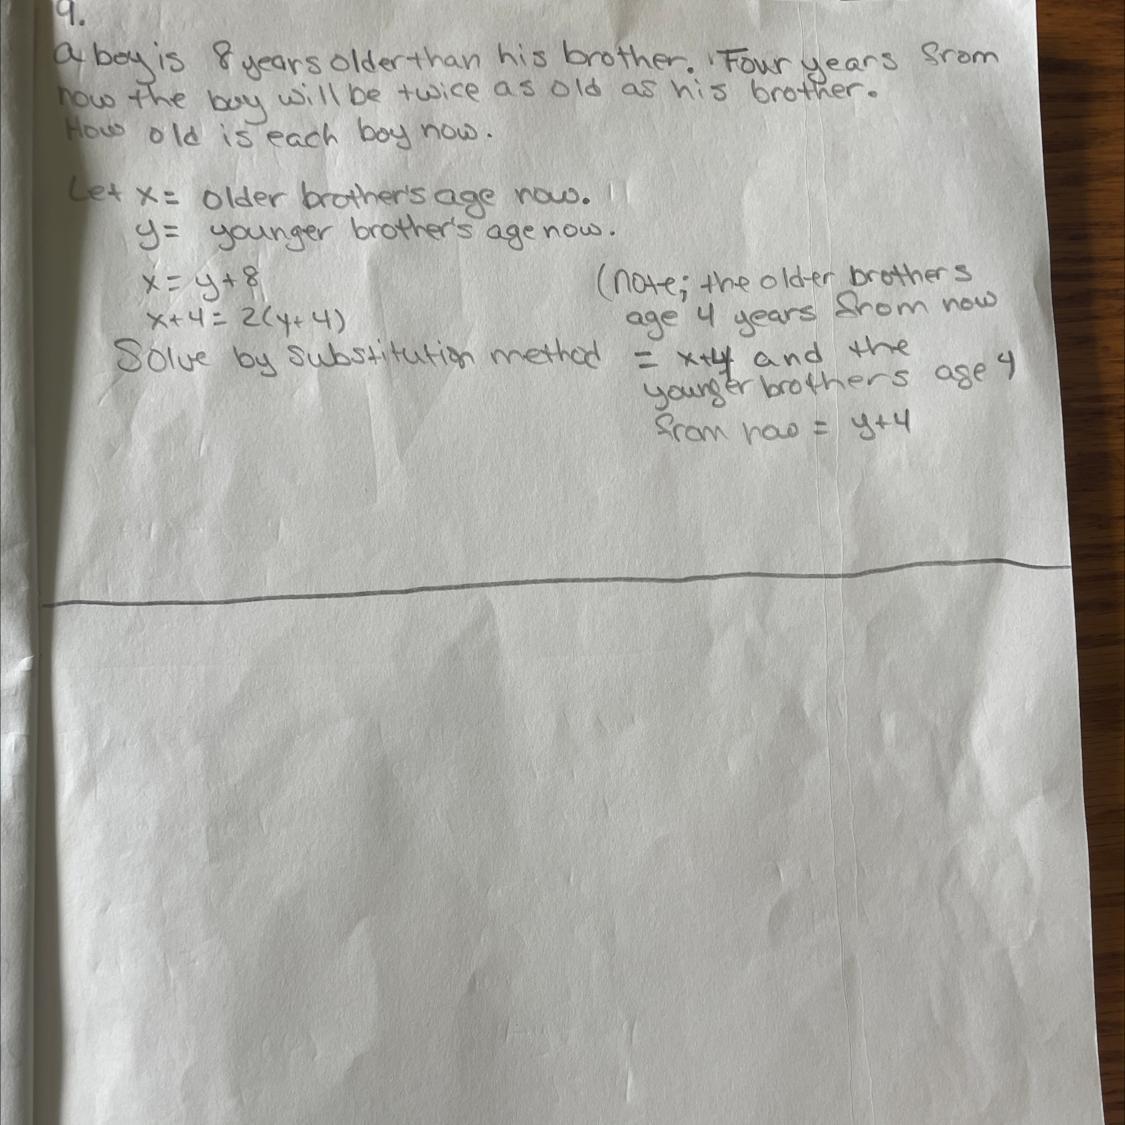 9.
A boy is 8 years older than his brother. Four years from
now the boy will be twice as old as his brother.
How old is each boy now.
Let x= older brother's age now.
y= younger brother's age now.
x= y+8
x+4= 2(y+4)
Solve by substitution method
(note; the older brothers
age 4 years from now
= x+4 and the
younger brothers age 4
from now = y+4